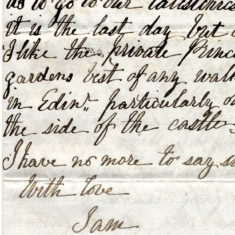 as to go to our
it is the last day but
I like the private Princ
gardens best of any walk
in Edinr. particularly o
the side of the castle
I have no more to say, s
With love
I am